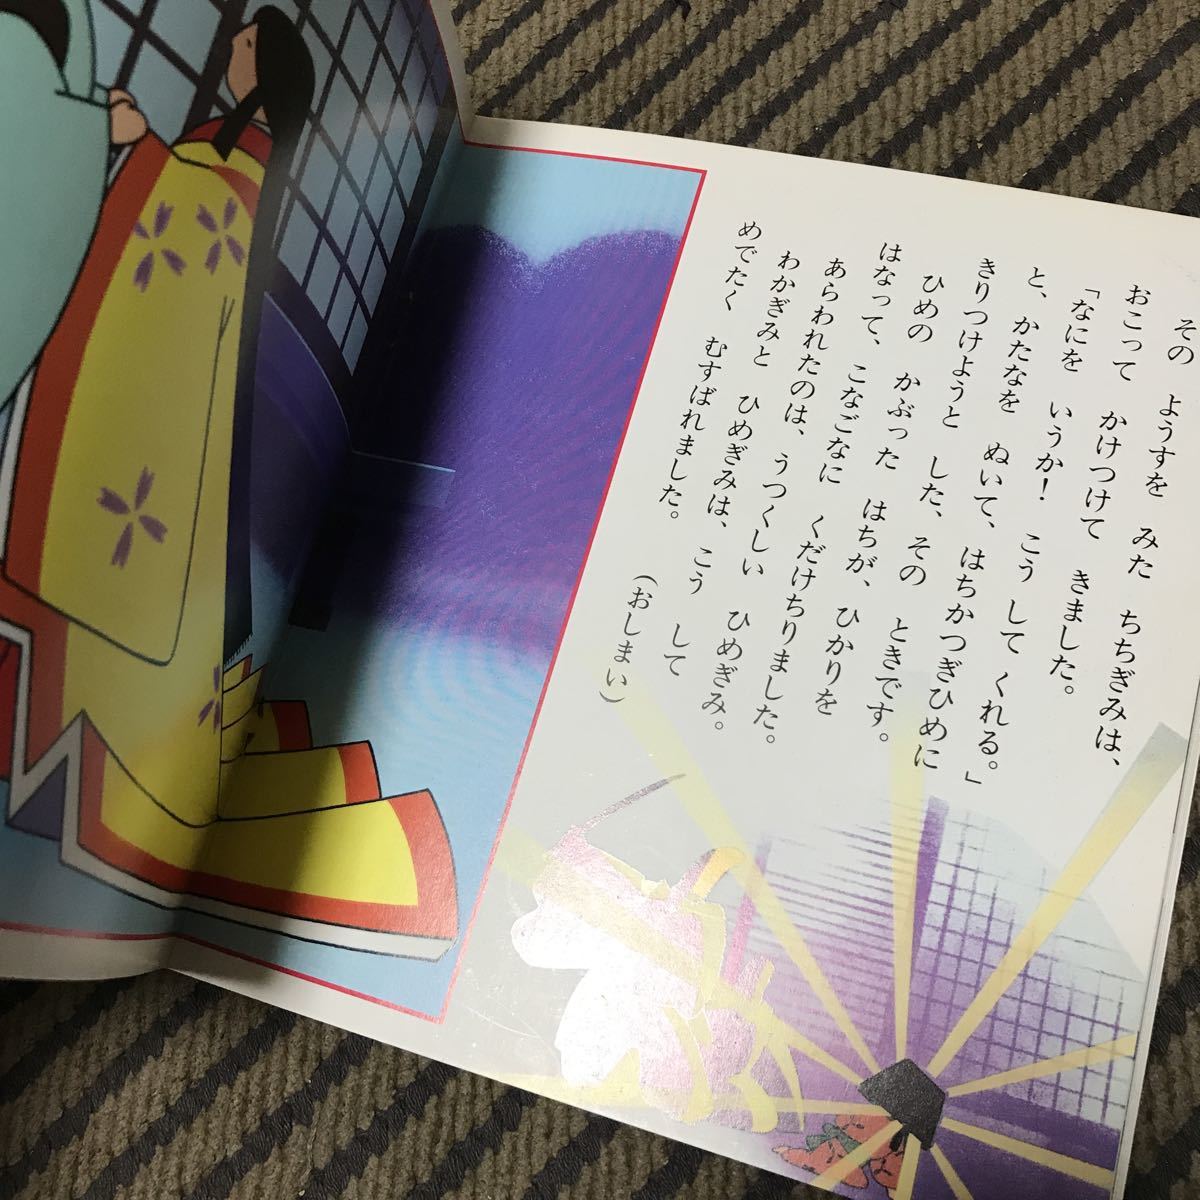 その　ようすを　みた　ちちぎみは、
おこって　かけつけて　きました。
「なにを　いうか！　こう　して　くれる。」
と、かたなを　ぬいて、はちかつぎひめに
きりつけようと　した、その　ときです。
ひめの　かぶった　はちが、ひかりを
はなって、こなごなに　くだけちりました。
あらわれたのは、うつくしい　ひめぎみ。
わかぎみと　ひめぎみは、こう　して
めでたく　むすばれました。
（おしまい）